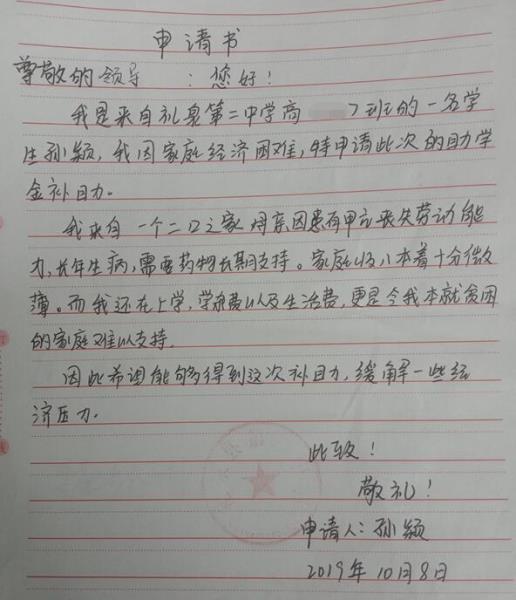 申请书
尊敬的领导 ：您好！
我是来自礼泉第二中学高 7班的一名学
生孙颖，我因家庭经济困难，特申请此次的助学
金补助。
我来自一个二口之家 母亲因患有甲亢丧失劳动能
力，长年生病，需要药物长期支持。家庭收入本着十分微
薄。而我还在上学，学杂费以及生活费，更是令我本就贫困
的家庭难以支持。
因此希望能够得到这次补助，缓解一些经
济压力。
此致！
敬礼！
申请人：孙颖
2019年10月8日